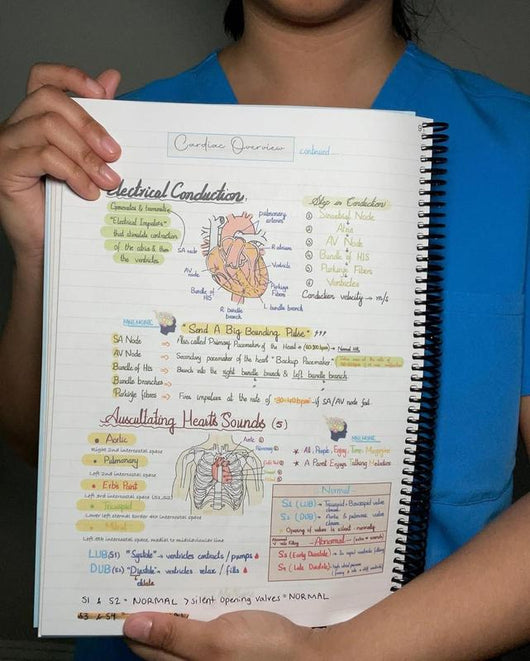 Cardiac Overview continued...
Electrical Conduction
Generates & transmits
"Electrical Impulses"
that stimulate contraction
of the atria & then
the ventricles
SA node
AV node
Bundle of HIS
R bundle branch
pulmonary arteries
R atrium
Ventricle
Purkinje Fibers
L bundle branch
Step in Conduction
① Sinoatrial Node
② Atria
③ AV Node
④ Bundle of HIS
⑤ Purkinje Fibers
⑥ Ventricles
Conduction velocity → m/s
MNEUMONIC
"Send A Big Bounding Pulse" ???
SA Node → Also called Primary Pacemaker of the Heart → (60-100bpm) → Normal HR
AV Node → Secondary pacemaker of the heart "Backup Pacemaker"
Bundle of His → Branch into the right bundle branch & left bundle branch
Bundle branches →
Purkinje fibers → Fires impulses at the rate of if SA/AV node fail
Auscultating Hearts Sounds (5)
• Aortic
Right 2nd intercostal space
• Pulmonary
Left 2nd intercostal space
• Erbs Point
Left 3rd intercostal space (S1, S2)
• Tricuspid
Lower left sternal border 4th intercostal space
• Mitral
Left 5th intercostal space, medial to midclavicular line
Aortic ①
Pulmonary ②
MNEUMONIC
* All People Enjoy Time Magazine
Normal
S1 (LUB) → Tricuspid & Bicuspid valves close
S2 (DUB) → Aortic & pulmonic valves close
Opening of valves is silent - normally
Abnormal
S3 (Early Diastole)
S4 (Late Diastole)
LUB (S1) "Systole" → ventricles contracts / pumps
DUB (S2) "Dyastole" → ventricles relax / fills
dilate
S1 & S2 = NORMAL > silent opening valves = NORMAL
S3 & S4